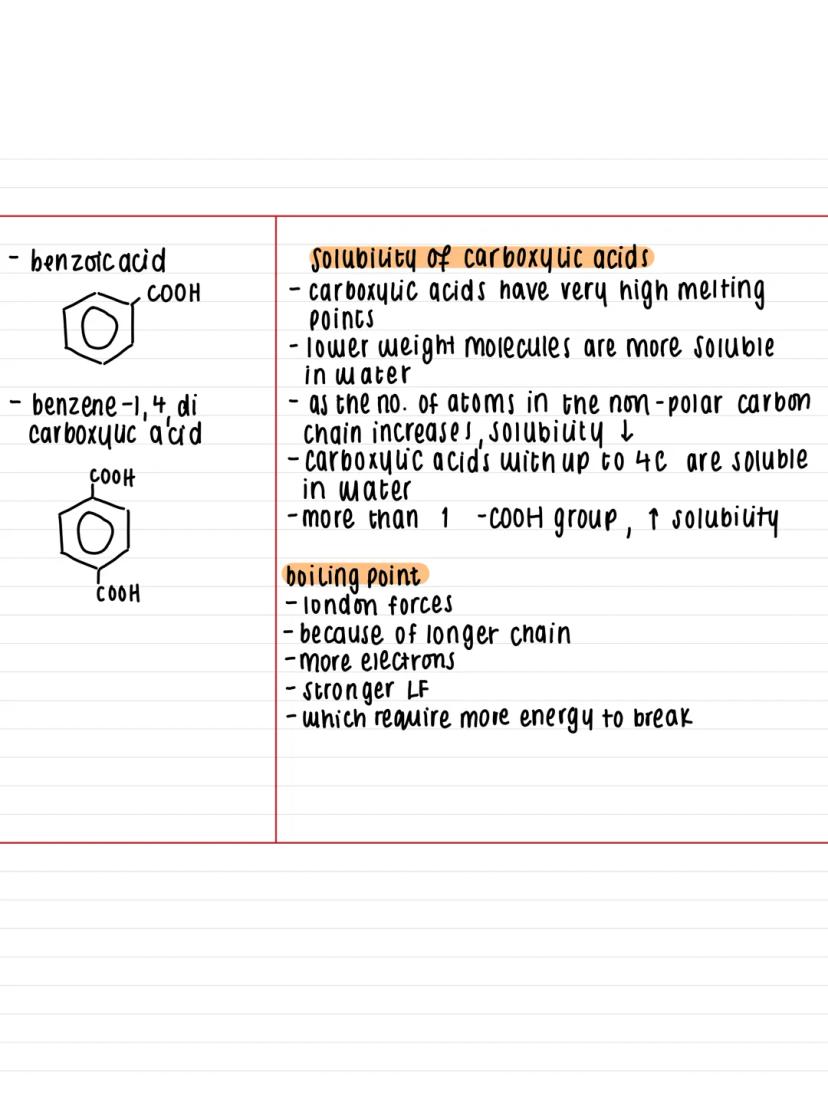 - benzoic acid
COOH
- benzene-1,4, di
carboxylic acid
COOH
COOH
solubility of carboxylic acids
- carboxylic acids have very high melting
points
- lower weight molecules are more soluble
in water
- as the no. of atoms in the non-polar carbon
chain increases, solubility ↓
- carboxylic acids with up to 4C are soluble
in water
- more than 1 -COOH group, ↑ solubility
boiling point
- london forces
- because of longer chain
- more electrons
- stronger LF
- which require more energy to break